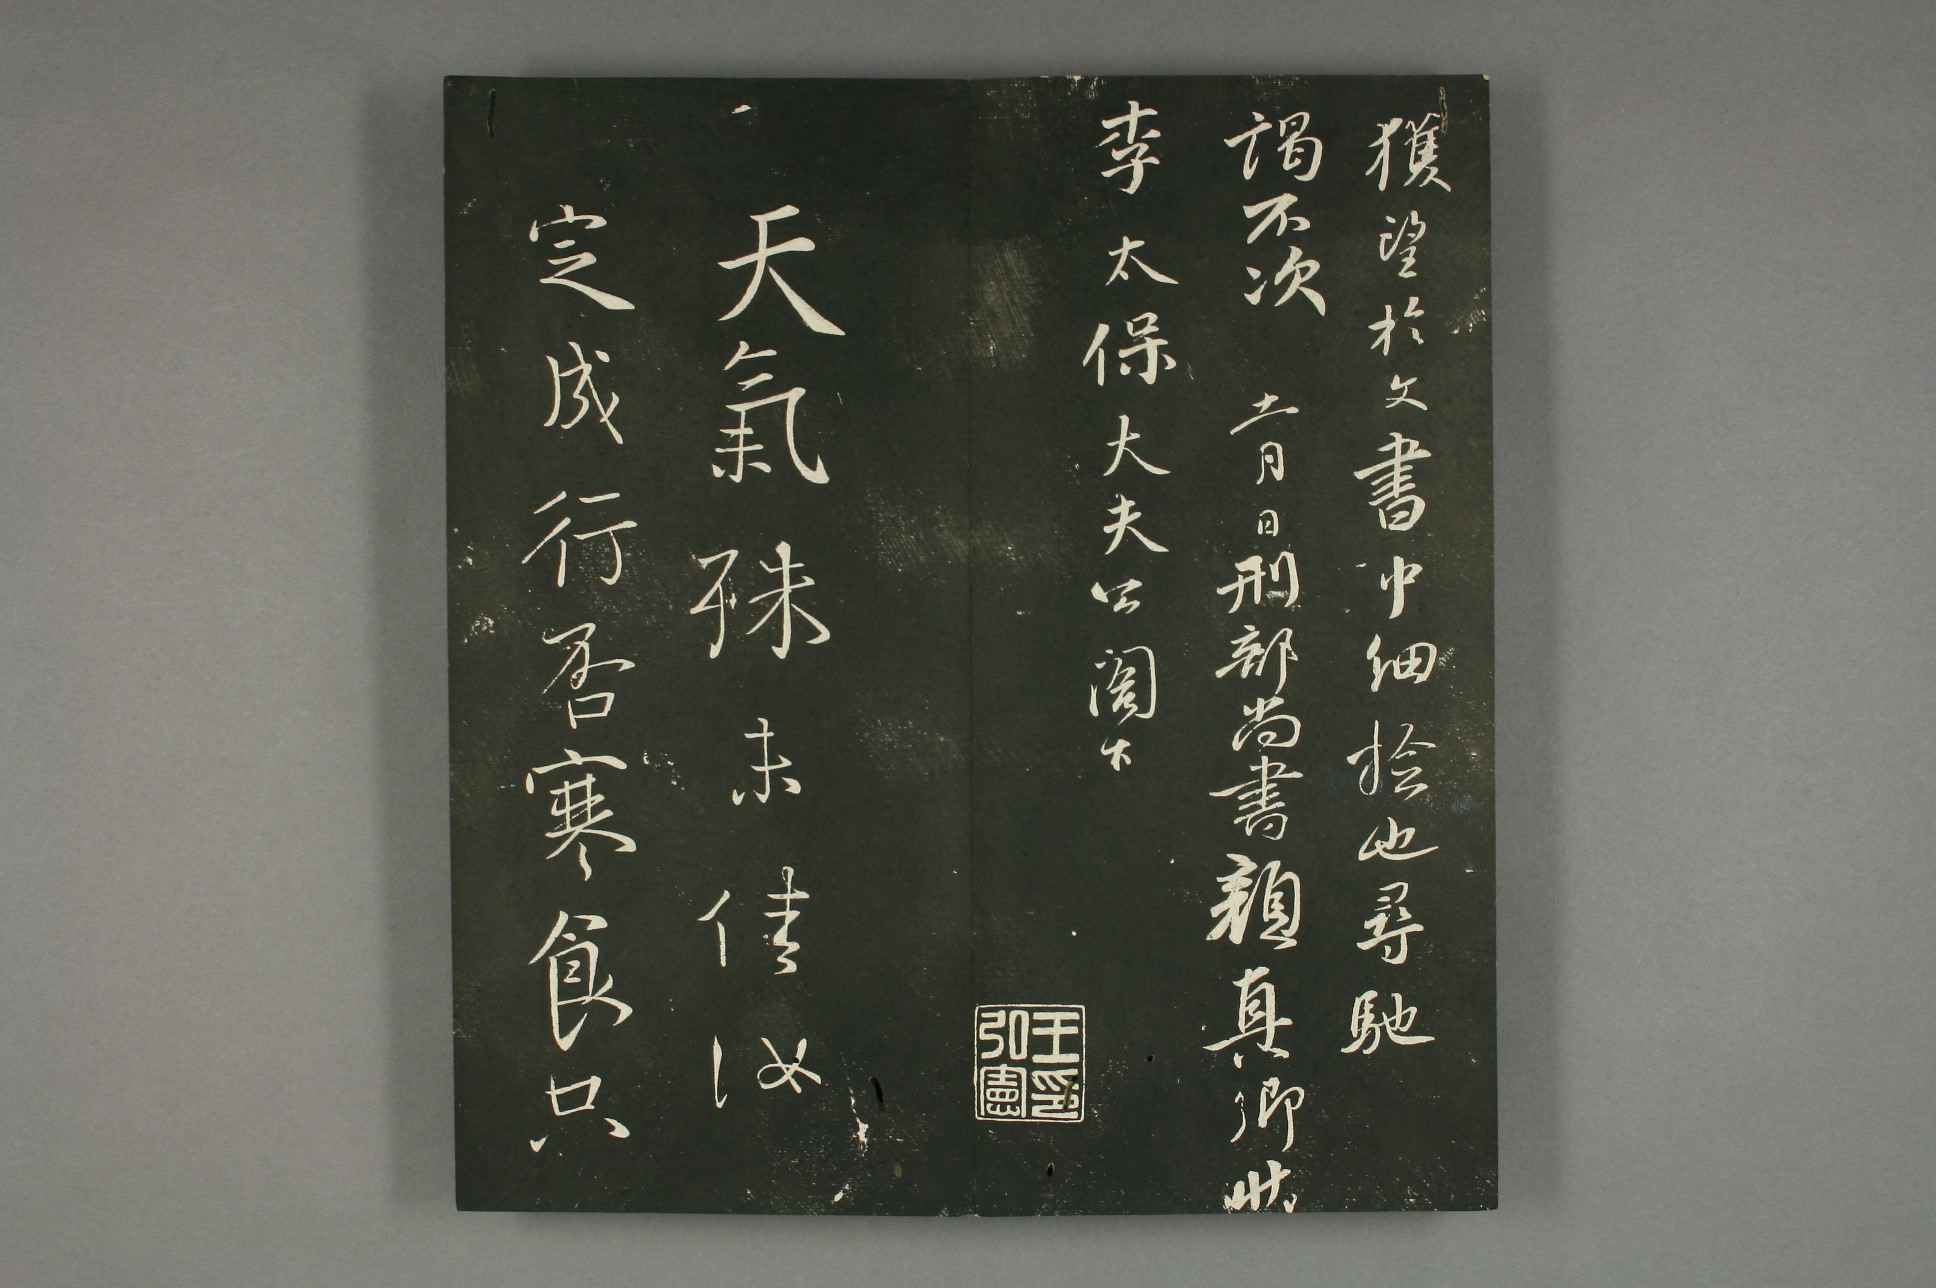 獲望於文書中細撿也尋馳
謁不次 十一月日刑部尚書顏真卿狀
李太保大夫公閣下
王印
弘憲
天氣殊未佳汝
定成行否寒食只